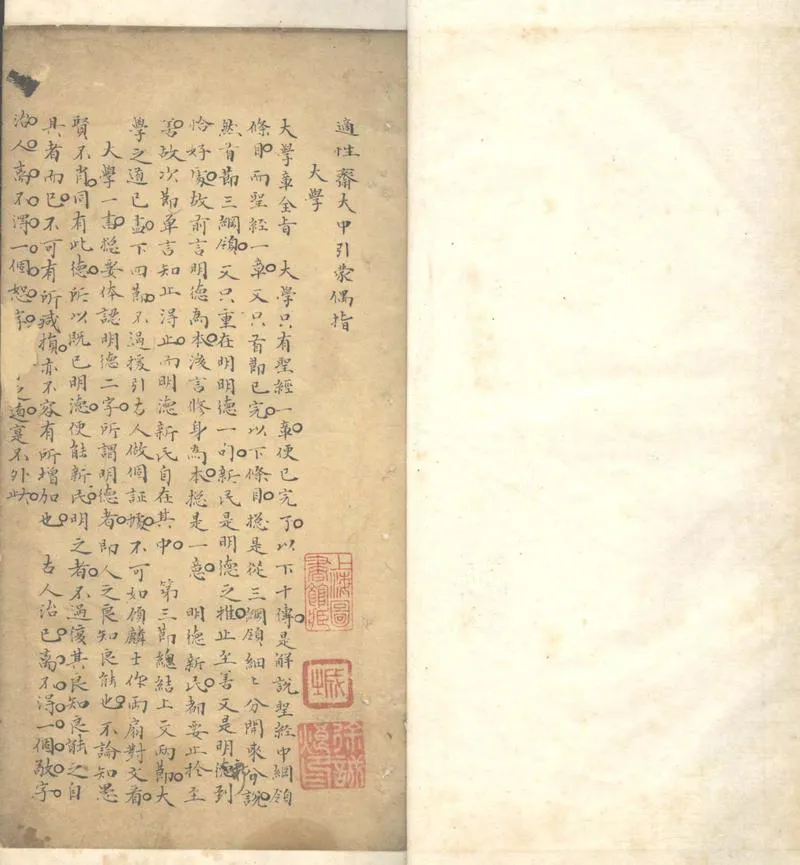 適性齋大中引蒙偶指
大學
大學章全旨　大學只有聖經一章便已完了以下十傳是解說聖經中綱領
條目而聖經一章又只首節已完以下條目搃是從三綱領細〻分開來分說
然首節三綱領又只重在明明德一句新民是明德之推止至善又是明德新人到
恰好處故前言明德為本後言修身為本搃是一意　明德新民都要止於至
善故次節單言知止得止而明德新民自在其中　第三節總結上文兩節大
學之道已盡下四節不過援引古人做個証據不可如顧麟士作兩扇對文看
大學一書搃要体認明德二字所謂明德者即人之良知良能也不論知愚
賢不肖同有此德所以既已明德便能新民明之者不過復其良知良能之自
具者而已不可有所减損亦不容有所增加也　古人治己離不得一個敬字
治人離不得一個恕字　之道寔不外此
上海圖書館藏